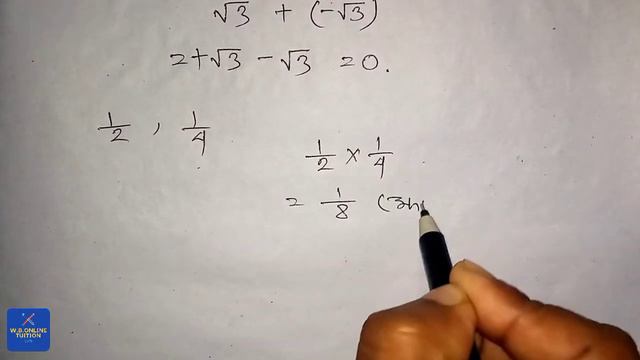 √3 + (-√3)
= +√3 - √3 = 0.
1/2 , 1/4
1/2 × 1/4
= 1/8
W.B.ONLINE
TUITION